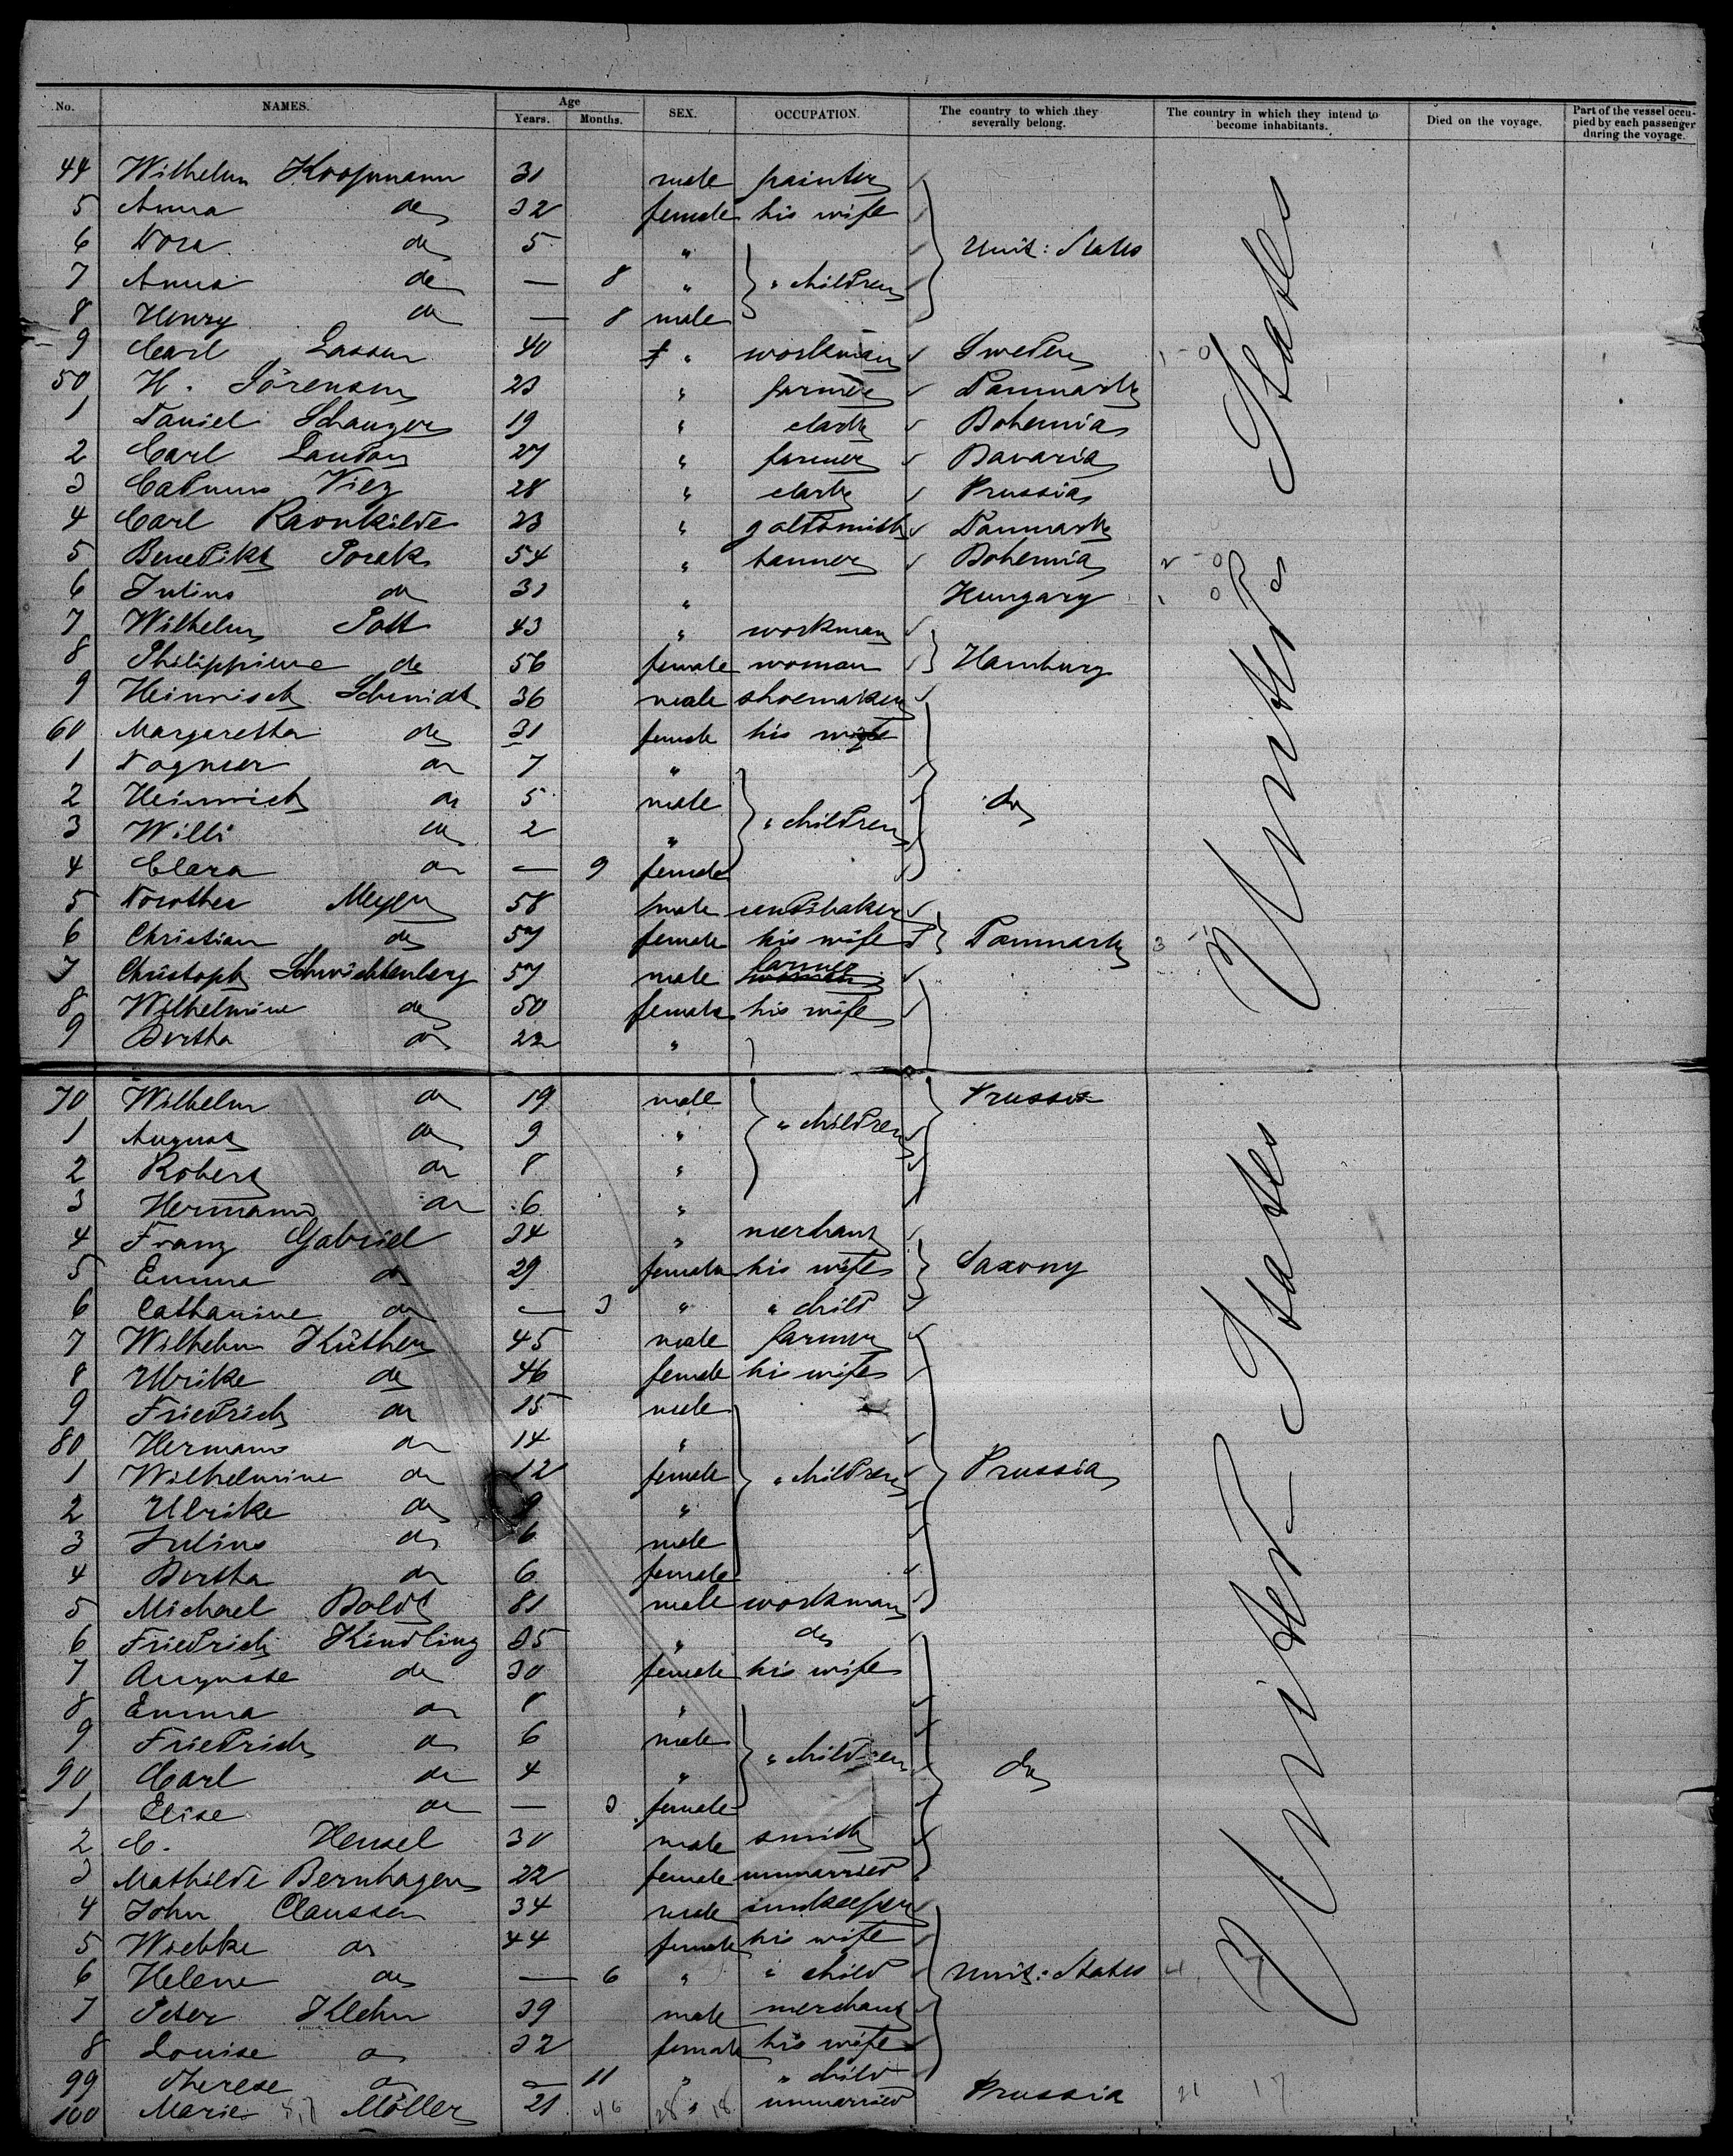 No. NAMES. Age Years. Months. SEX. OCCUPATION. The country to which they severally belong. The country in which they intend to become inhabitants. Died on the voyage. Part of the vessel occupied by each passenger during the voyage.
44 Wilhelm Koopmann 31 male painter
5 Anna do 32 female his wife
6 Dora do 5 " Unit: States
7 Anna do — 8 " " children
8 Henry do — 8 male
9 Carl Lassen 40 " workman Sweden
50 H. Sörensen 23 " farmer Danmark
1 Daniel Schanzer 19 " clark Bohemia
2 Carl Landau 27 " farmer Bavaria
3 Viez 28 " clark Prussia
4 Carl Ravnkilde 23 " goldsmith Danmark
5 Benedikt Porak 54 " tanner Bohemia
6 Julius do 31 " Hungary
7 Wilhelm Pott 43 " workman
8 Philippine do 56 female woman Hamburg
9 Heinrich Schmidt 36 male shoemaker
60 Margaretha do 31 female his wife
1 Dagmar do 7 "
2 Heinrich do 5 male do
3 Willi do 2 " " children
4 Clara do — 9 female
5 Dorothea Meyer 58 male
6 Christian do 57 female his wife Danmark
7 Christoph Schwichtenberg 57 male farmer
8 Wilhelmine do 50 female his wife
9 Bertha do 22 "
70 Wilhelm do 19 male Prussia
1 August do 9 " " children
2 Robert do 8 "
3 Hermann do 6 "
4 Franz Gabriel 34 " merchant
5 Emma do 29 female his wife Saxony
6 Catharine do — 3 " " child
7 Wilhelm Küther 45 male farmer
8 Ulrike do 46 female his wife
9 Friedrich do 15 male
80 Hermann do 14 "
1 Wilhelmine do 12 female " children Prussia
2 Ulrike do 9 "
3 Julius do 6 male
4 Bertha do 6 female
5 Michael Boldt 81 male workman
6 Friedrich Kindling 35 " do
7 Auguste do 30 female his wife
8 Emma do 8 "
9 Friedrich do 6 male " children
90 Carl do 4 " do
1 Elise do — 3 female
2 C. Hensel 30 male smith
3 Mathilde Bernhagen 22 female unmarried
4 John Claussen 34 male innkeeper
5 Wiebke do 44 female his wife
6 Helene do — 6 " " child Unit: States
7 Peter Klehn 39 male merchant
8 Louise do 32 female his wife
99 Therese do — 11 " " child
100 Marie Möller 21 " unmarried Prussia
United States
United States